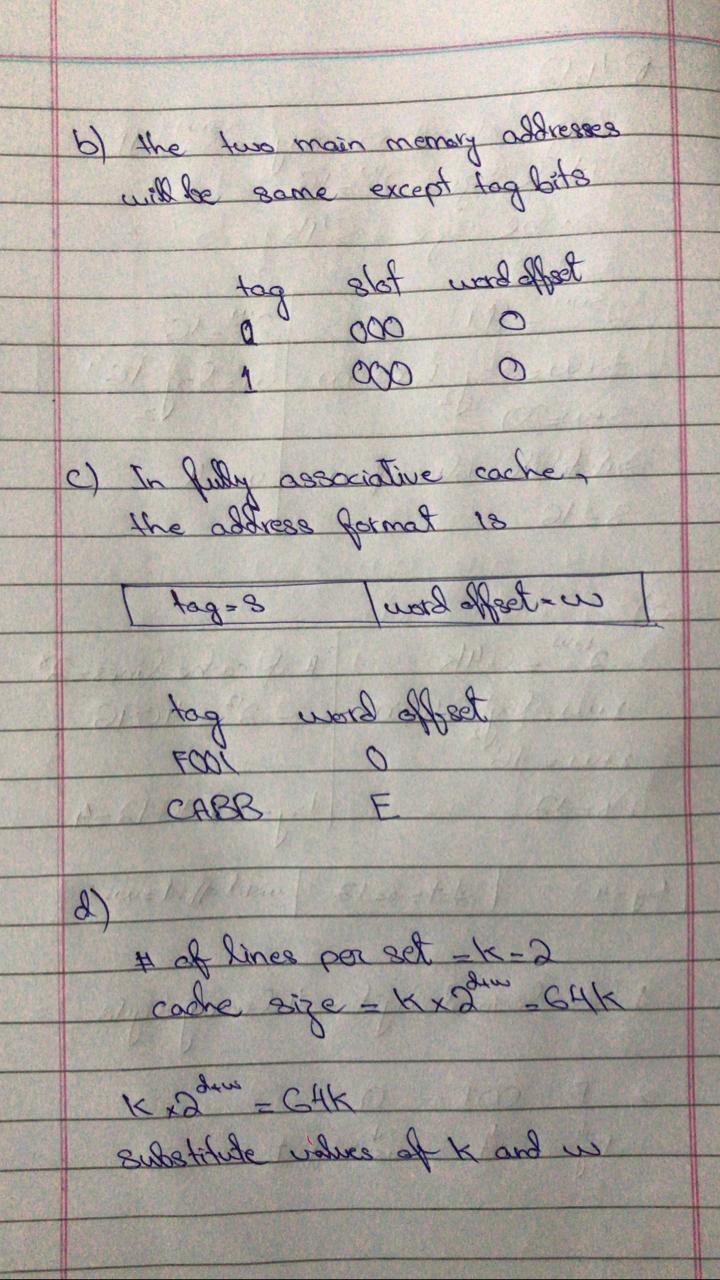 b) the two main memory addresses
will be same except tag bits
tag slot word offset
0 000 0
1 000 0
c) In fully associative cache,
the address format is
tag = s word offset = w
tag word offset
F001 0
CABB E
d)
# of lines per set = k = 2
cache size = k x 2^d+w = 64K
k x 2^d+w = 64K
substitute values of k and w